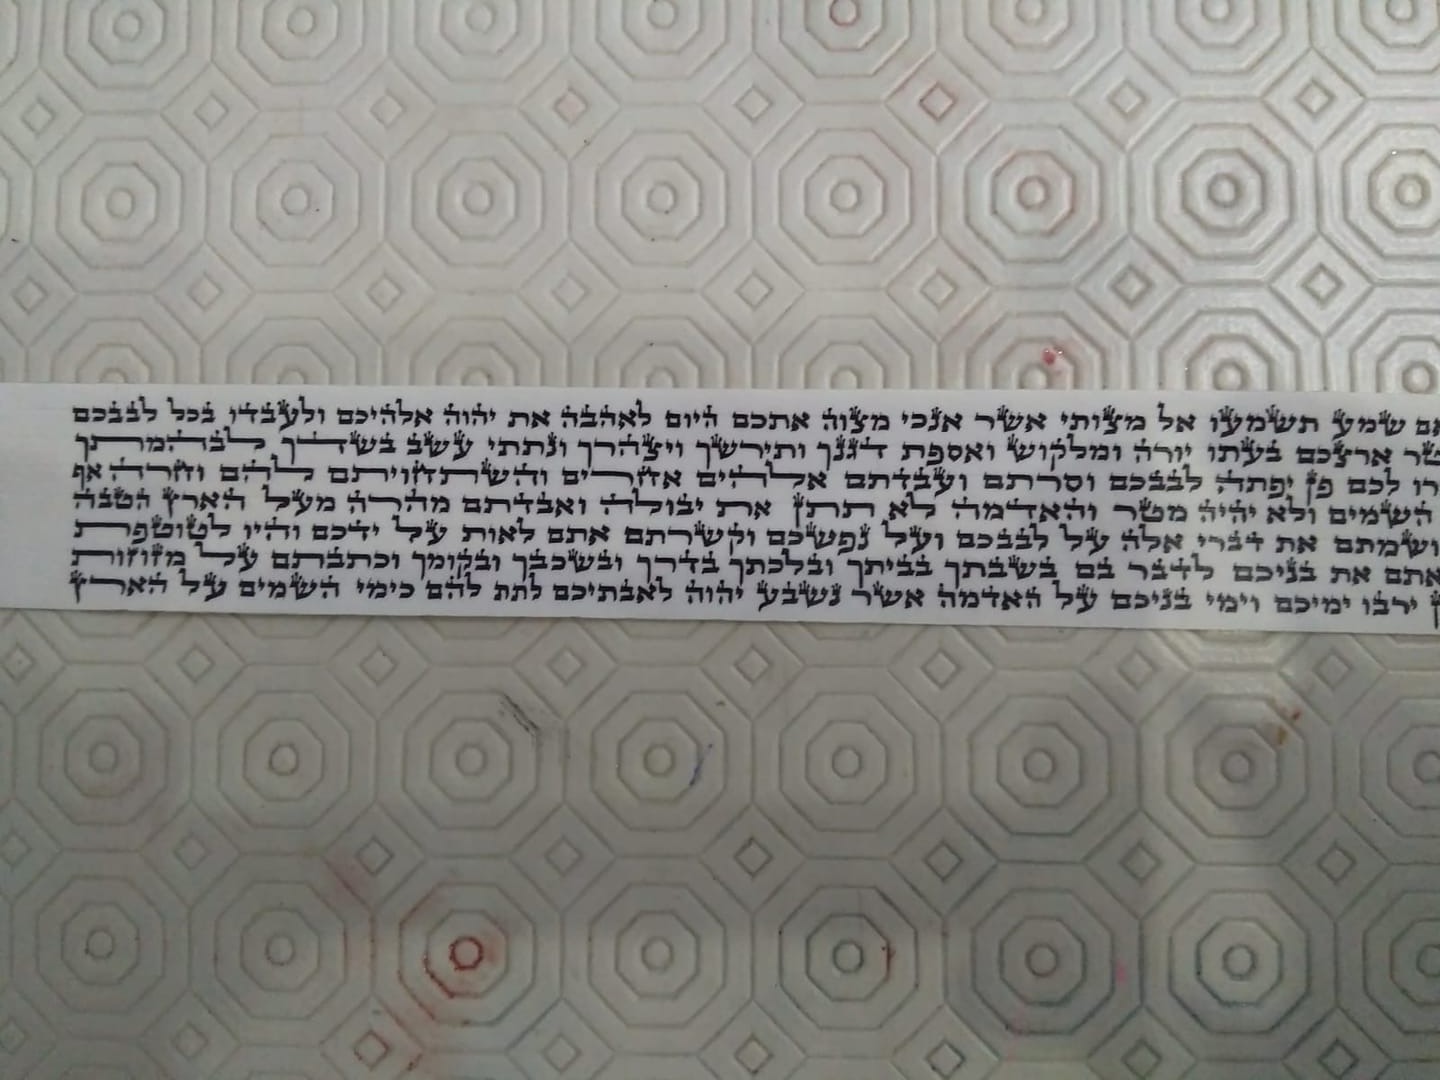 אם שמע תשמעו אל מצותי אשר אנכי מצוה אתכם היום לאהבה את יהוה אלהיכם ולעבדו בכל לבבכם
טר ארצכם בעתו יורה ומלקוש ואספת דגנך ותירשך ויצהרך ונתתי עשב בשדך לבהמתך
רו לכם פן יפתה לבבכם וסרתם ועבדתם אלהים אחרים והשתחויתם להם וחרה אף
השמים ולא יהיה מטר והאדמה לא תתן את יבולה ואבדתם מהרה מעל הארץ הטבה
ושמתם את דברי אלה על לבבכם ועל נפשכם וקשרתם אתם לאות על ידכם והיו לטוטפת
אתם את בניכם לדבר בם בשבתך בביתך ובלכתך בדרך ובשכבך ובקומך וכתבתם על מזוזות
ירבו ימיכם וימי בניכם על האדמה אשר נשבע יהוה לאבתיכם לתת להם כימי השמים על הארץ